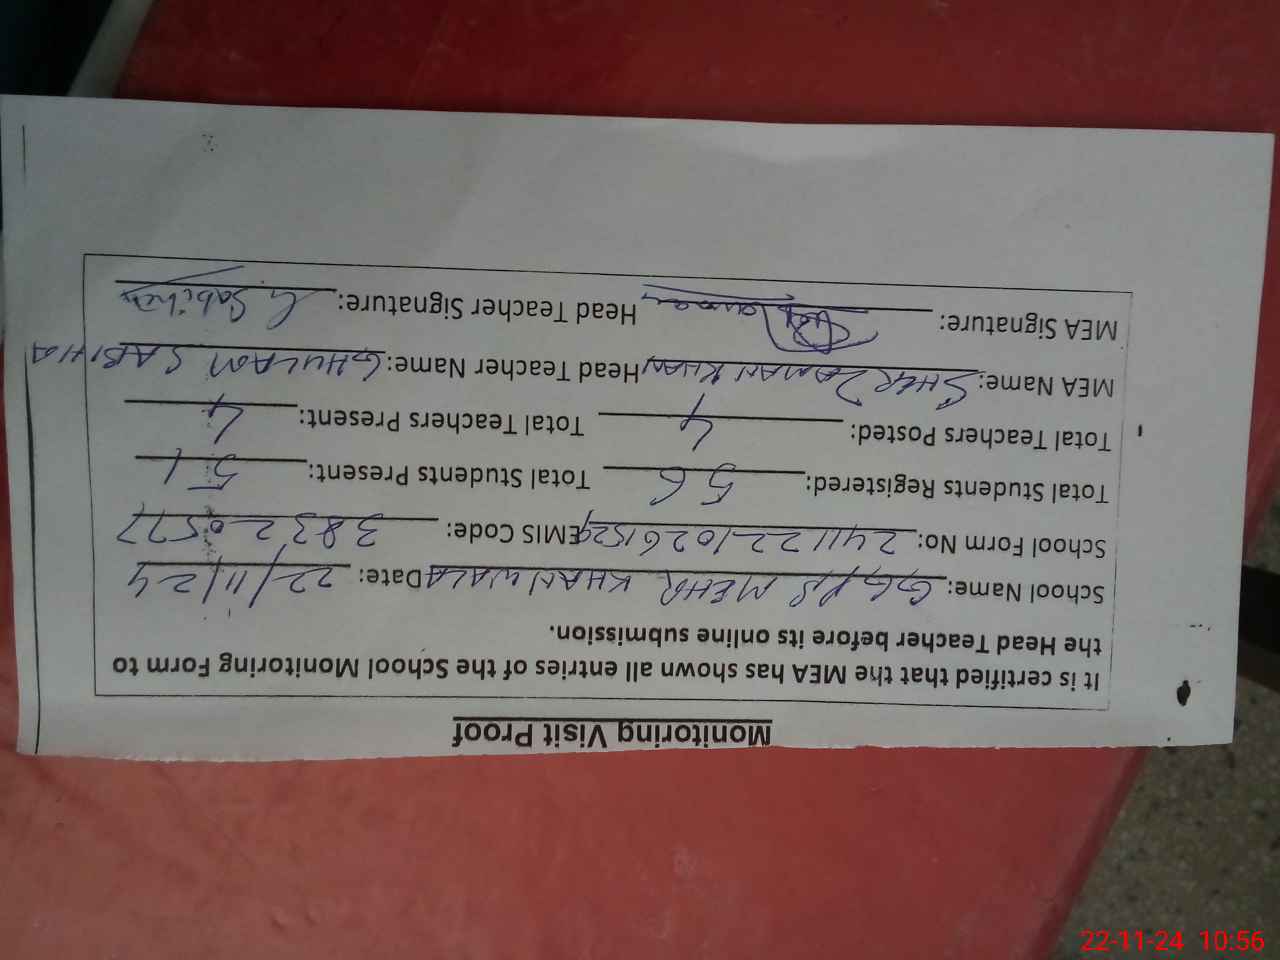 Monitoring Visit Proof
It is certified that the MEA has shown all entries of the School Monitoring Form to
the Head Teacher before its online submission.
School Name: GGPS MEHR KHAN WALA Date: 22/11/24
School Form No: 241122102615294 EMIS Code: 38320577
Total Students Registered: 56 Total Students Present: 51
Total Teachers Posted: 4 Total Teachers Present: 4
MEA Name: SHER ZAMAN KHAN Head Teacher Name: GHULAM SABIHA
MEA Signature: Head Teacher Signature: G Sabiha
22-11-24 10:56